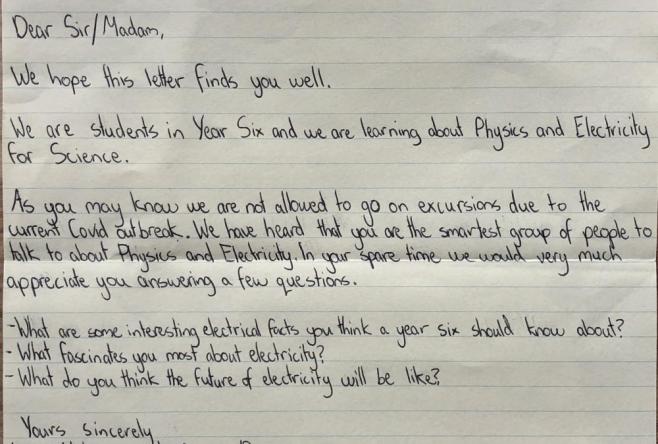 Dear Sir/Madam,
We hope this letter finds you well.
We are students in Year Six and we are learning about Physics and Electricity
for Science.
As you may know we are not allowed to go on excursions due to the
current Covid outbreak. We have heard that you are the smartest group of people to
talk to about Physics and Electricity. In your spare time we would very much
appreciate you answering a few questions.
-What are some interesting electrical facts you think a year six should know about?
- What fascinates you most about electricity?
- What do you think the future of electricity will be like?
Yours sincerely